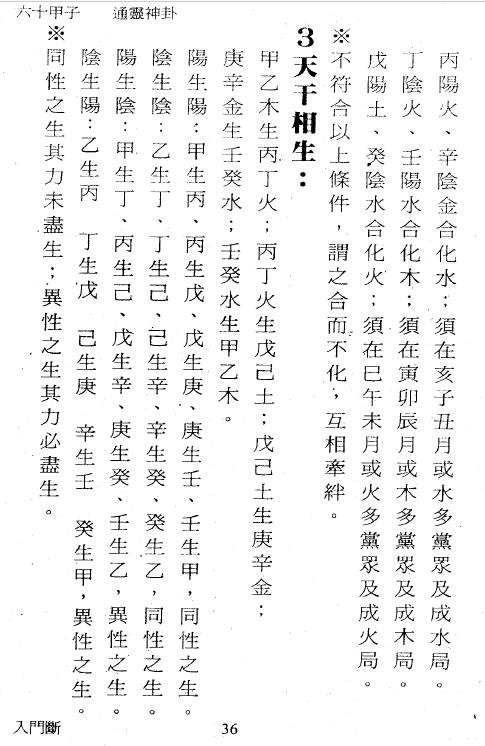 六十甲子　　通靈神卦
丙陽火、辛陰金合化水；須在亥子丑月或水多黨眾及成水局。
丁陰火、壬陽水合化木；須在寅卯辰月或木多黨眾及成木局。
戊陽土、癸陰水合化火；須在巳午未月或火多黨眾及成火局。
※不符合以上條件，謂之合而不化，互相牽絆。
3天干相生：
甲乙木生丙丁火；丙丁火生戊己土；戊己土生庚辛金；
庚辛金生壬癸水；壬癸水生甲乙木。
陽生陽：甲生丙、丙生戊、戊生庚、庚生壬、壬生甲，同性之生。
陰生陰：乙生丁、丁生己、己生辛、辛生癸、癸生乙，同性之生。
陽生陰：甲生丁、丙生己、戊生辛、庚生癸、壬生乙，異性之生。
陰生陽：乙生丙　丁生戊　己生庚　辛生壬　癸生甲，異性之生。
※同性之生其力未盡生；異性之生其力必盡生。
入門斷
36